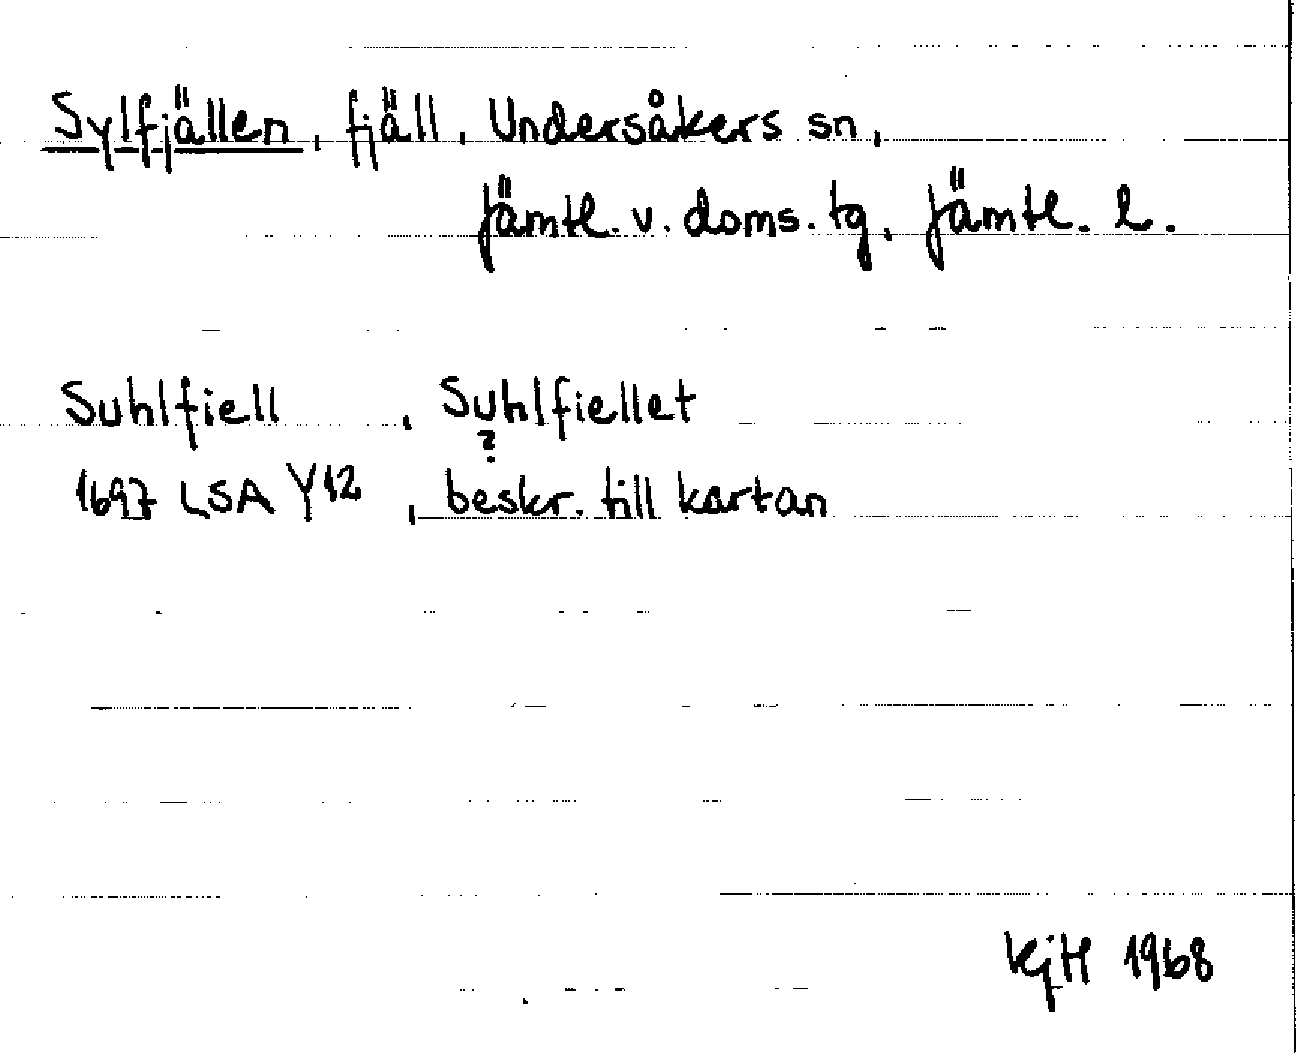 Sylfjällen, fjäll, Undersåkers sn,
Jämtl. v. doms. tg, Jämtl. l.
Suhlfiell, Suhlfiellet
?
1697 LSA Y12, beskr. till kartan
KjH 1968